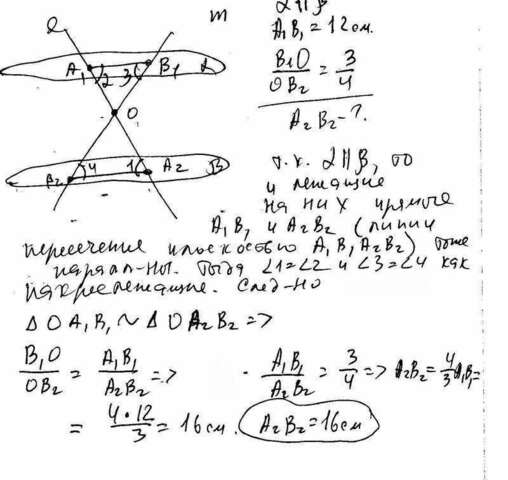 α || β
m
l
A₁B₁ = 12 см.
A₁ 2 3 B₁ α
B₁O / OB₂ = 3/4
O
A₂B₂ - ?
4 1 A₂ β
B₂
т. к. α || β, то
и лежащие
на них прямые
A₁B₁ и A₂B₂ (линии
пересечение плоскостью A₁B₁A₂B₂) тоже
парал-ны. Тогда ∠1=∠2 и ∠3=∠4 как
накрест лежащие. След-но
Δ OA₁B₁ ~ Δ OA₂B₂ =>
B₁O / OB₂ = A₁B₁ / A₂B₂ => A₁B₁ / A₂B₂ = 3/4 => A₂B₂ = 4/3 A₁B₁ =
= 4·12 / 3 = 16 см. A₂B₂ = 16 см